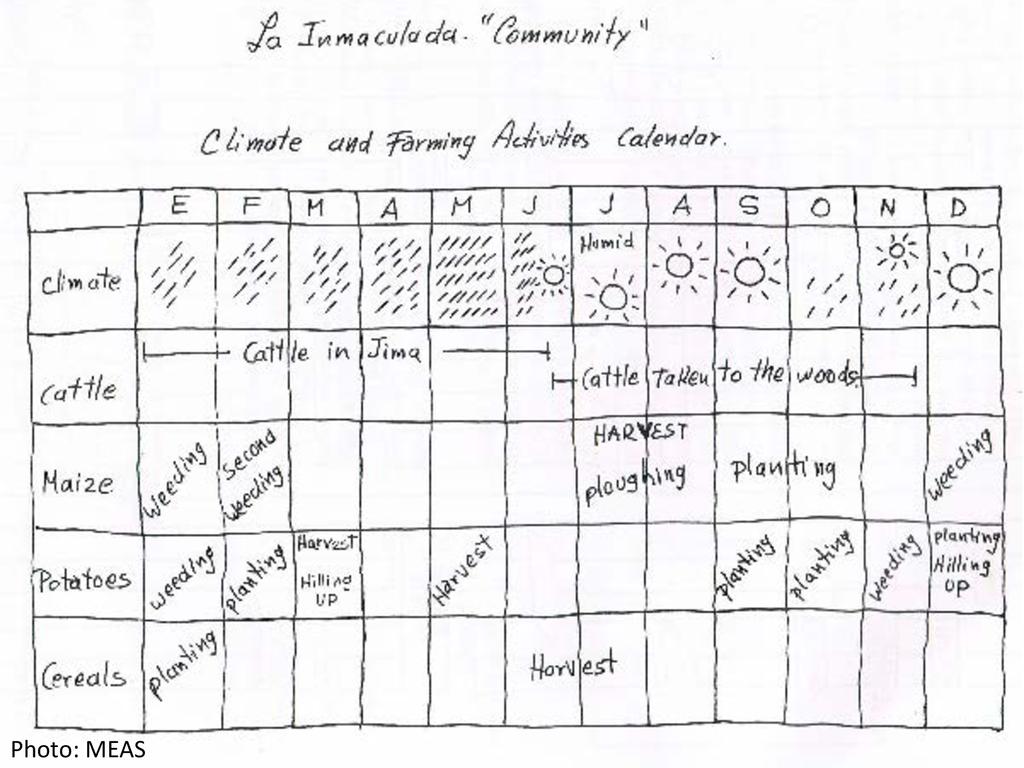 La Inmaculada. "Community"
Climate and Farming Activities Calendar.
E F M A M J J A S O N D
Climate Humid
Cattle Cattle in Jima Cattle Taken to the woods
Maize weeding second weeding HARVEST ploughing planting weeding
Potatoes weeding planting Harvest Hilling UP Harvest planting planting weeding planting Hilling UP
Cereals planting Harvest
Photo: MEAS